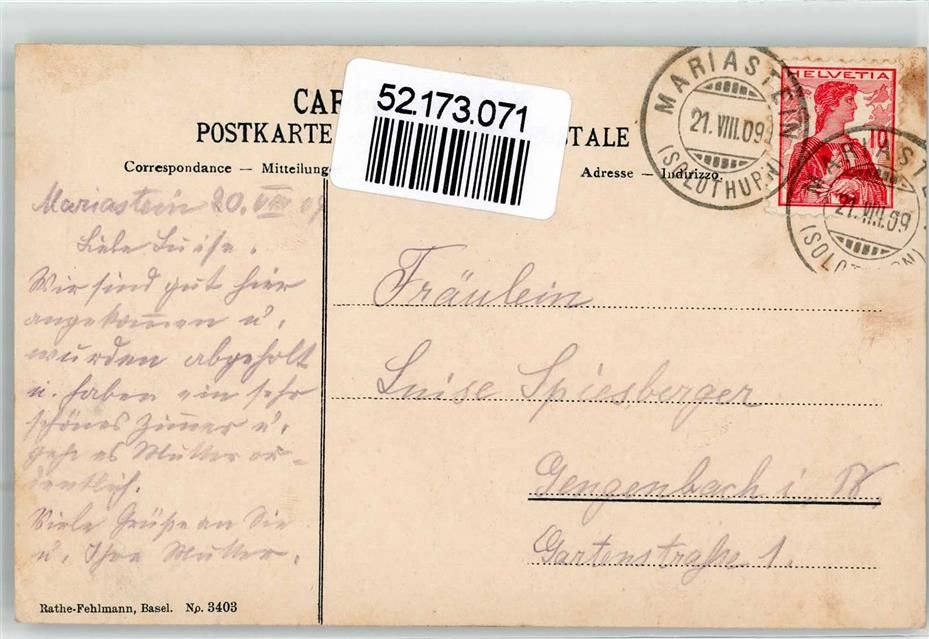 CAR
52.173.071
POSTKARTE
STALE
Correspondance — Mitteilung
Adresse — Indirizzo.
MARIASTEIN
21.VIII.09
(SOLOTHURN)
HELVETIA
10
MARIASTE
21.VIII.09
(SOLOTHURN)
Mariastein 20. VIII 09
Liebe Luise.
Wir sind gut hier
angekom̅en u.
wurden abgeholt
u. haben ein sehr
schönes Zim̅er u.
geht es Mutter or-
dentlich.
Viele Grüße an Sie
u. Ihre Mutter.
Fräulein
Luise Spiesberger
Gengenbach i.
Gartenstraße 1.
Rathe-Fehlmann, Basel. No. 3403